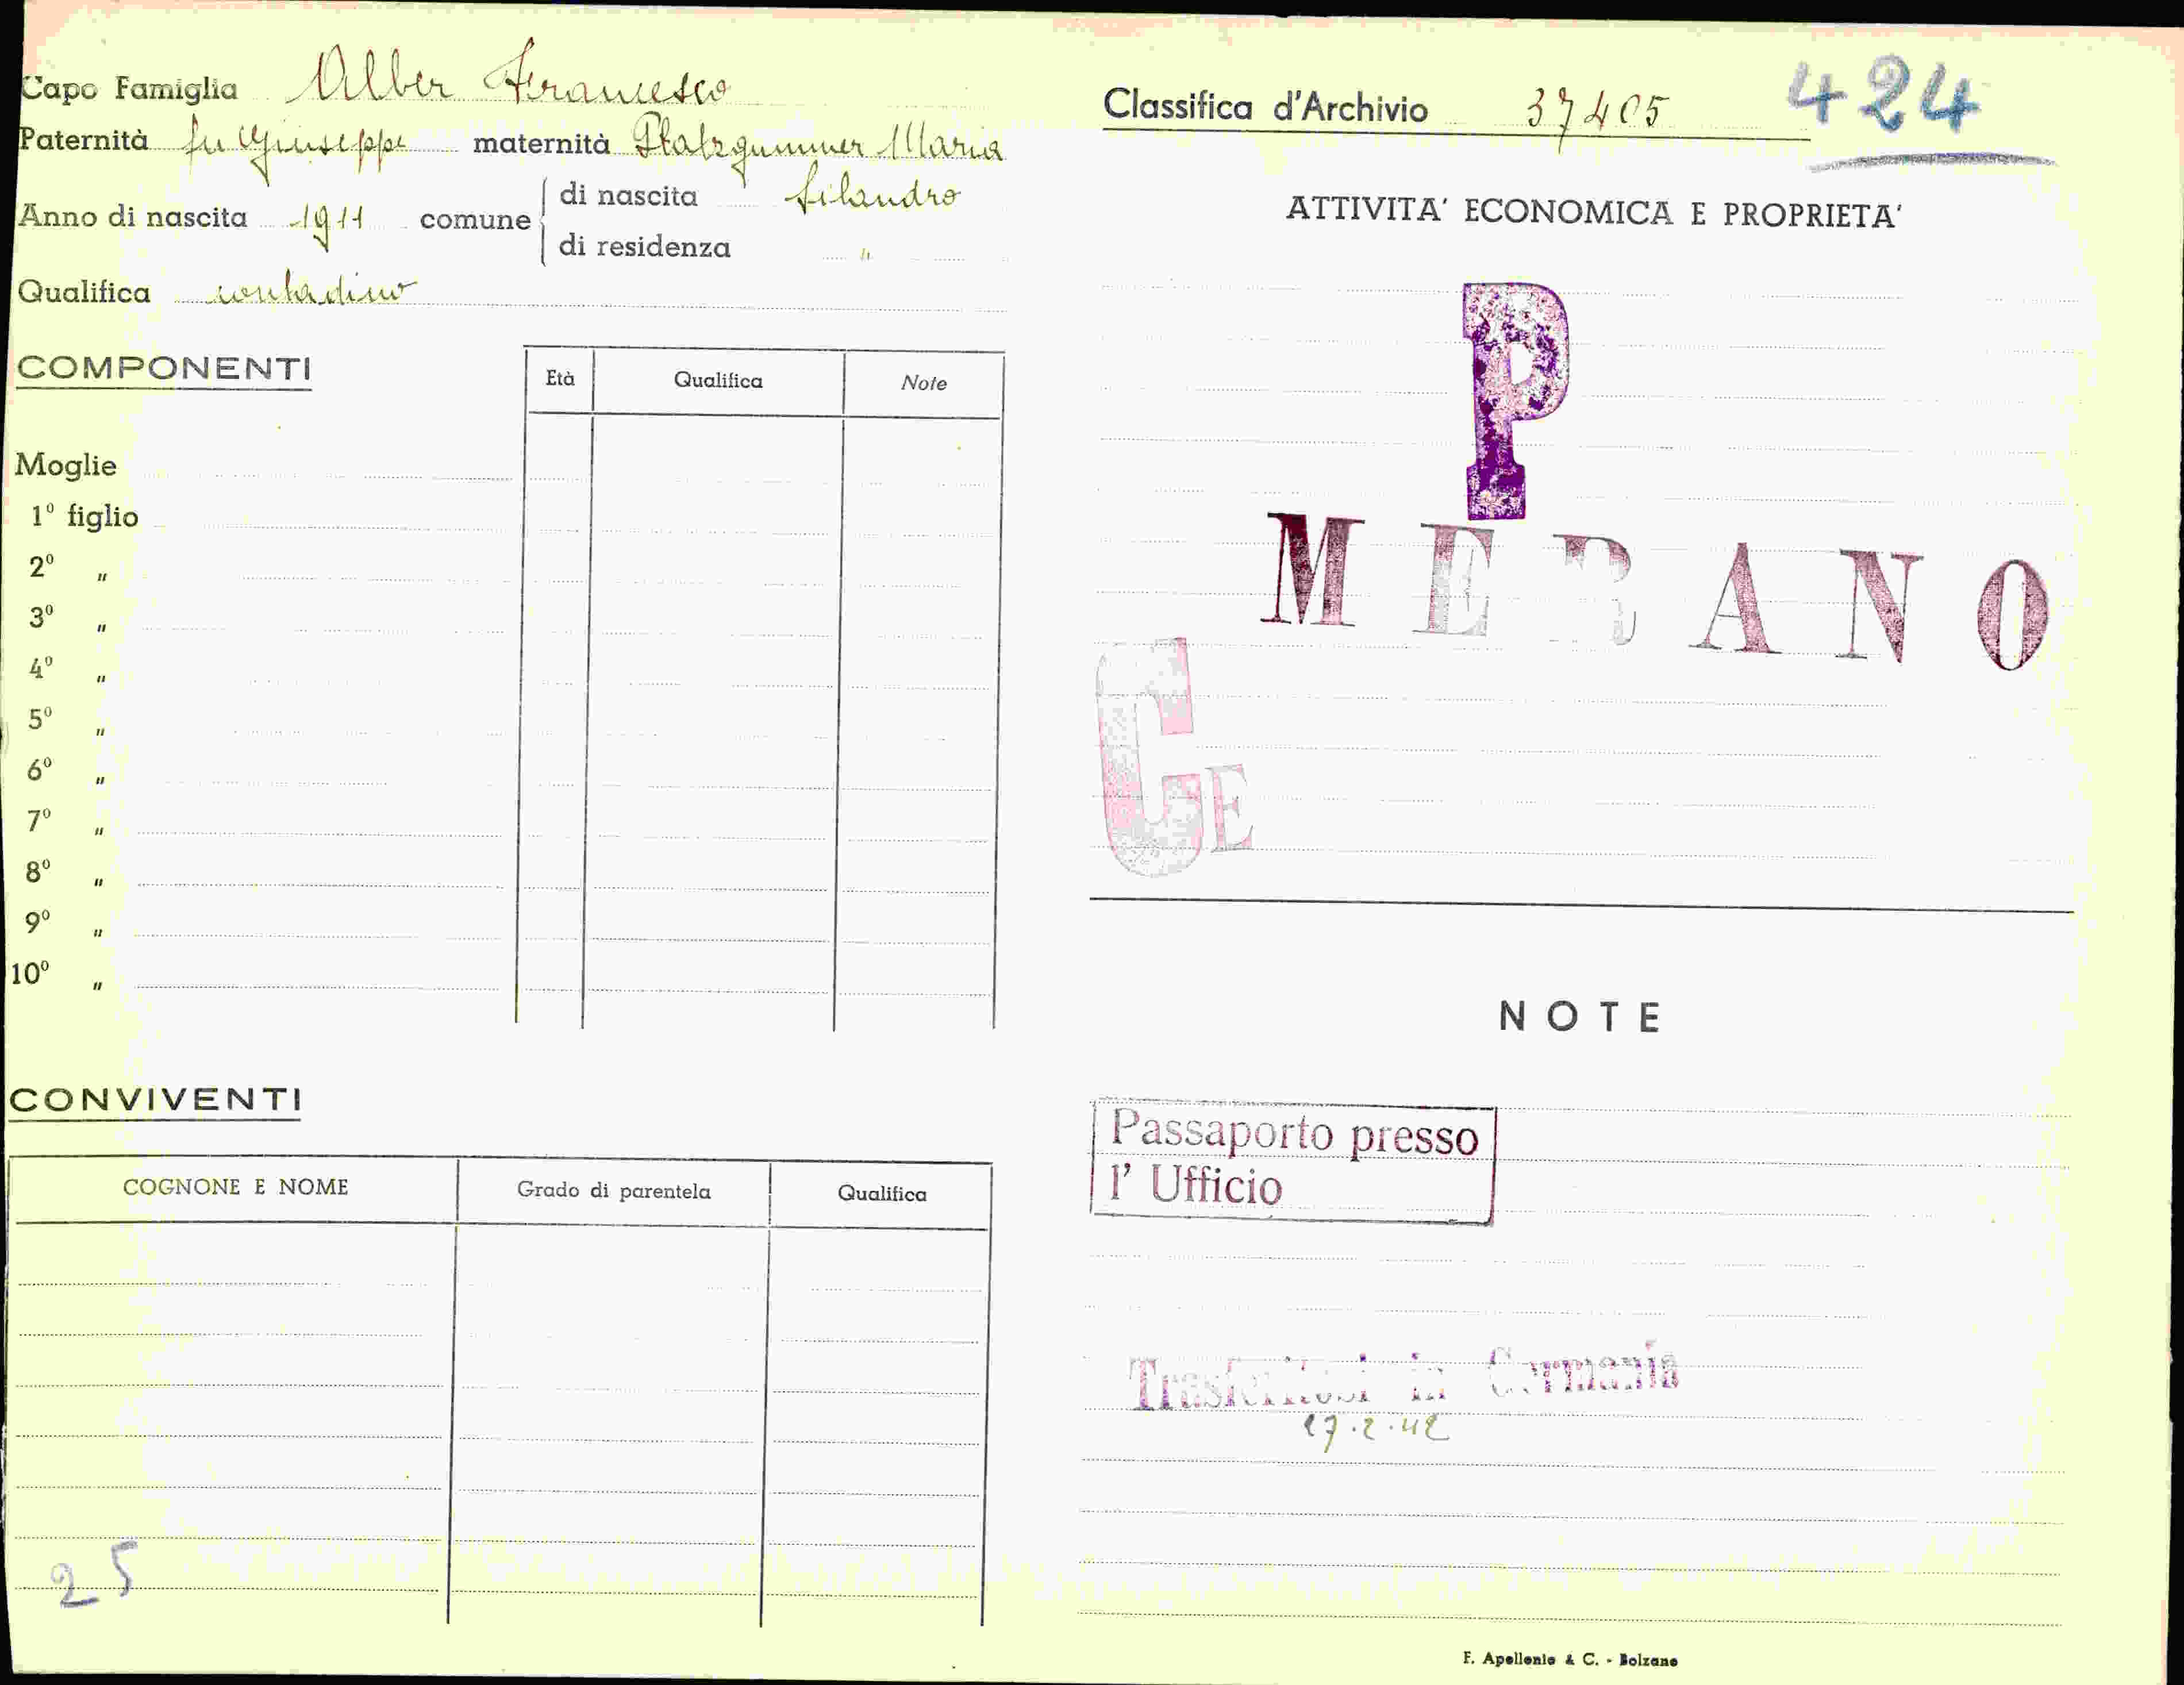 Capo Famiglia Alber Francesco
Paternità fu Giuseppe maternità Platzgummer Maria
Anno di nascita 1911 comune di nascita Silandro
di residenza "
Qualifica contadino
COMPONENTI
Età Qualifica Note
Moglie
1º figlio
2º "
3º "
4º "
5º "
6º "
7º "
8º "
9º "
10º "
CONVIVENTI
COGNONE E NOME Grado di parentela Qualifica
25
Classifica d'Archivio 37405 424
ATTIVITA' ECONOMICA E PROPRIETA'
P
MERANO
CE
NOTE
Passaporto presso
l' Ufficio
Trasferitosi in Germania
17.2.42
F. Apollonio & C. - Bolzano